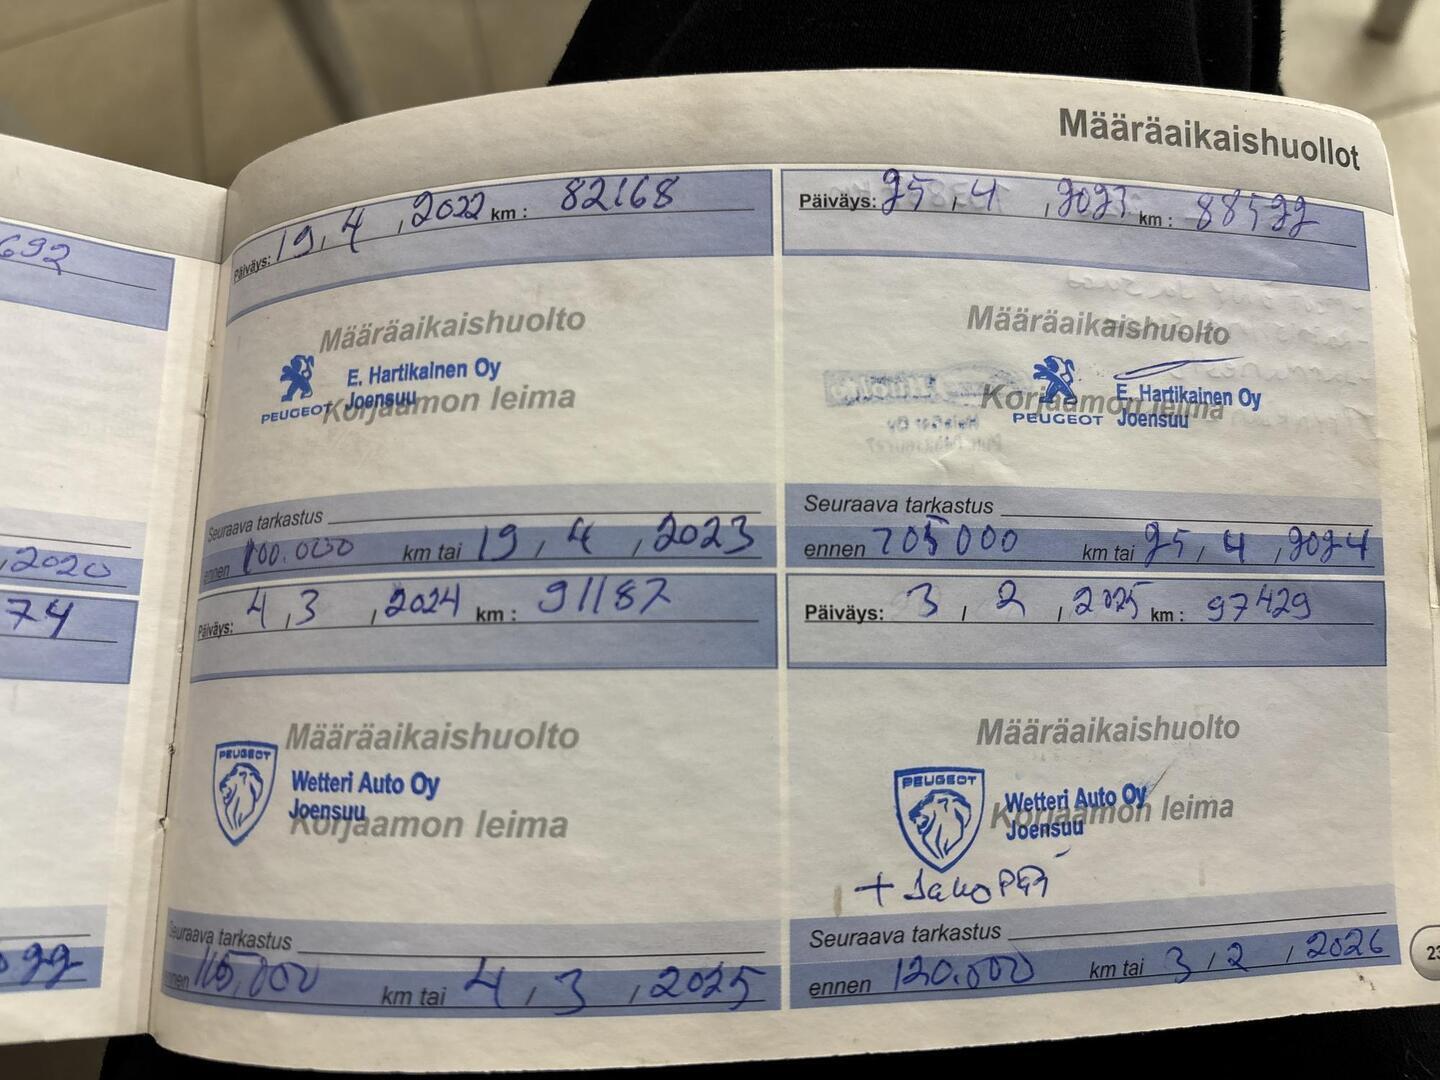 Määräaikaishuollot
692
, 2020
74
Päiväys: 19, 4 , 2022 km : 82168
Määräaikaishuolto
PEUGEOT
E. Hartikainen Oy
Joensuu
Korjaamon leima
Seuraava tarkastus
ennen 100.000 km tai 19 , 4 , 2023
Päiväys: 25 , 4 , 2023 km :
Määräaikaishuolto
PEUGEOT
E. Hartikainen Oy
Joensuu
Korjaamon leima
Seuraava tarkastus
ennen 105000 km tai 25 , 4 , 2024
Päiväys: 4 , 3 , 2024 km : 91187
Määräaikaishuolto
PEUGEOT
Wetteri Auto Oy
Joensuu
Korjaamon leima
Seuraava tarkastus
ennen 115,000 km tai 4 , 3 , 2025
Päiväys: 3 , 2 , 2025 km : 97429
Määräaikaishuolto
PEUGEOT
Wetteri Auto Oy
Joensuu
Korjaamon leima
+ Jakopää
Seuraava tarkastus
ennen 120.000 km tai 3 , 2 , 2026
23